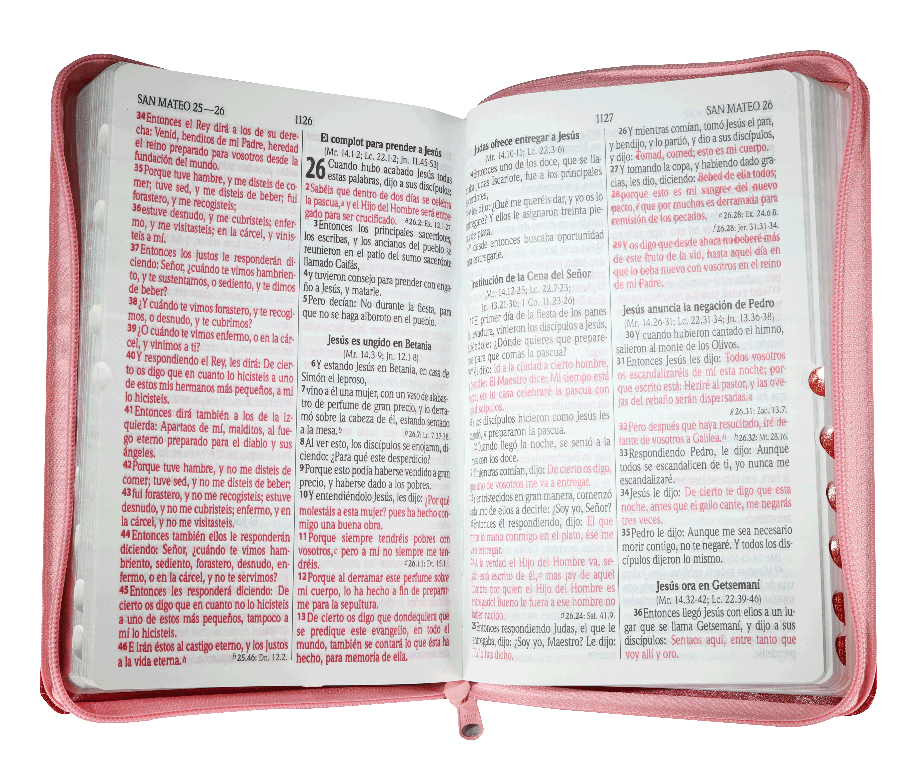 SAN MATEO 25—26
1126
34Entonces el Rey dirá a los de su dere-
cha: Venid, benditos de mi Padre, heredad
el reino preparado para vosotros desde la
fundación del mundo.
35Porque tuve hambre, y me disteis de co-
mer; tuve sed, y me disteis de beber; fui
forastero, y me recogisteis;
36estuve desnudo, y me cubristeis; enfer-
mo, y me visitasteis; en la cárcel, y vinis-
teis a mí.
37Entonces los justos le responderán di-
ciendo: Señor, ¿cuándo te vimos hambrien-
to, y te sustentamos, o sediento, y te dimos
de beber?
38¿Y cuándo te vimos forastero, y te recogi-
mos, o desnudo, y te cubrimos?
39¿O cuándo te vimos enfermo, o en la cár-
cel, y vinimos a ti?
40Y respondiendo el Rey, les dirá: De cier-
to os digo que en cuanto lo hicisteis a uno
de estos mis hermanos más pequeños, a mí
lo hicisteis.
41Entonces dirá también a los de la iz-
quierda: Apartaos de mí, malditos, al fue-
go eterno preparado para el diablo y sus
ángeles.
42Porque tuve hambre, y no me disteis de
comer; tuve sed, y no me disteis de beber;
43fui forastero, y no me recogisteis; estuve
desnudo, y no me cubristeis; enfermo, y en
la cárcel, y no me visitasteis.
44Entonces también ellos le responderán
diciendo: Señor, ¿cuándo te vimos ham-
briento, sediento, forastero, desnudo, en-
fermo, o en la cárcel, y no te servimos?
45Entonces les responderá diciendo: De
cierto os digo que en cuanto no lo hicisteis
a uno de estos más pequeños, tampoco a
mí lo hicisteis.
46E irán éstos al castigo eterno, y los justos
a la vida eterna.h h25.46: Dn. 12.2.
El complot para prender a Jesús
(Mr. 14.1-2; Lc. 22.1-2; Jn. 11.45-53)
26 Cuando hubo acabado Jesús todas
estas palabras, dijo a sus discípulos:
2Sabéis que dentro de dos días se celebra
la pascua,a y el Hijo del Hombre será entre-
gado para ser crucificado. a26.2: Ex. 12.1-27.
3Entonces los principales sacerdotes,
los escribas, y los ancianos del pueblo se
reunieron en el patio del sumo sacerdote
llamado Caifás,
4y tuvieron consejo para prender con enga-
ño a Jesús, y matarle.
5Pero decían: No durante la fiesta, para
que no se haga alboroto en el pueblo.
Jesús es ungido en Betania
(Mr. 14.3-9; Jn. 12.1-8)
6Y estando Jesús en Betania, en casa de
Simón el leproso,
7vino a él una mujer, con un vaso de alabas-
tro de perfume de gran precio, y lo derra-
mó sobre la cabeza de él, estando sentado
a la mesa.b b26.7: Lc. 7.37-38.
8Al ver esto, los discípulos se enojaron, di-
ciendo: ¿Para qué este desperdicio?
9Porque esto podía haberse vendido a gran
precio, y haberse dado a los pobres.
10Y entendiéndolo Jesús, les dijo: ¿Por qué
molestáis a esta mujer? pues ha hecho con-
migo una buena obra.
11Porque siempre tendréis pobres con
vosotros,c pero a mí no siempre me ten-
dréis. c26.11: Dt. 15.11.
12Porque al derramar este perfume sobre
mi cuerpo, lo ha hecho a fin de preparar-
me para la sepultura.
13De cierto os digo que dondequiera que
se predique este evangelio, en todo el
mundo, también se contará lo que ésta ha
hecho, para memoria de ella.
1127
SAN MATEO 26
Judas ofrece entregar a Jesús
(Mr. 14.10-11; Lc. 22.3-6)
entonces uno de los doce, que se lla-
Judas Iscariote, fue a los principales
dijo: ¿Qué me queréis dar, y yo os lo
entregaré? Y ellos le asignaron treinta pie-
de plata.
desde entonces buscaba oportunidad
para entregarle.
Institución de la Cena del Señor
(Mr. 14.12-25; Lc. 22.7-23;
Jn. 13.21-30; 1 Co. 11.23-26)
El primer día de la fiesta de los panes
levadura, vinieron los discípulos a Jesús,
diciéndole: ¿Dónde quieres que prepare-
mos para que comas la pascua?
él dijo: Id a la ciudad a cierto hombre,
decidle: El Maestro dice: Mi tiempo está
en tu casa celebraré la pascua con
discípulos.
los discípulos hicieron como Jesús les
y prepararon la pascua.
Cuando llegó la noche, se sentó a la
con los doce.
mientras comían, dijo: De cierto os digo,
que uno de vosotros me va a entregar.
entristecidos en gran manera, comenzó
cada uno de ellos a decirle: ¿Soy yo, Señor?
Entonces él respondiendo, dijo: El que
la mano conmigo en el plato, ése me
entregar.
A la verdad el Hijo del Hombre va, se-
está escrito de él,d mas ¡ay de aquel
hombre por quien el Hijo del Hombre es
entregado! Bueno le fuera a ese hombre no
haber nacido. d26.24: Sal. 41.9.
Entonces respondiendo Judas, el que le
entregaba, dijo: ¿Soy yo, Maestro? Le dijo:
Tú lo has dicho.
26Y mientras comían, tomó Jesús el pan,
y bendijo, y lo partió, y dio a sus discípulos,
y dijo: Tomad, comed; esto es mi cuerpo.
27Y tomando la copa, y habiendo dado gra-
cias, les dio, diciendo: Bebed de ella todos;
28porque esto es mi sangre del nuevo
pacto,f que por muchos es derramada para
remisión de los pecados. e26.28: Ex. 24.6-8.
f26.28: Jer. 31.31-34.
29Y os digo que desde ahora no beberé más
de este fruto de la vid, hasta aquel día en
que lo beba nuevo con vosotros en el reino
de mi Padre.
Jesús anuncia la negación de Pedro
(Mr. 14.26-31; Lc. 22.31-34; Jn. 13.36-38)
30Y cuando hubieron cantado el himno,
salieron al monte de los Olivos.
31Entonces Jesús les dijo: Todos vosotros
os escandalizaréis de mí esta noche; por-
que escrito está: Heriré al pastor, y las ove-
jas del rebaño serán dispersadas.g
g26.31: Zac. 13.7.
32Pero después que haya resucitado, iré de-
lante de vosotros a Galilea.h h26.32: Mt. 28.16.
33Respondiendo Pedro, le dijo: Aunque
todos se escandalicen de ti, yo nunca me
escandalizaré.
34Jesús le dijo: De cierto te digo que esta
noche, antes que el gallo cante, me negarás
tres veces.
35Pedro le dijo: Aunque me sea necesario
morir contigo, no te negaré. Y todos los dis-
cípulos dijeron lo mismo.
Jesús ora en Getsemaní
(Mr. 14.32-42; Lc. 22.39-46)
36Entonces llegó Jesús con ellos a un lu-
gar que se llama Getsemaní, y dijo a sus
discípulos: Sentaos aquí, entre tanto que
voy allí y oro.